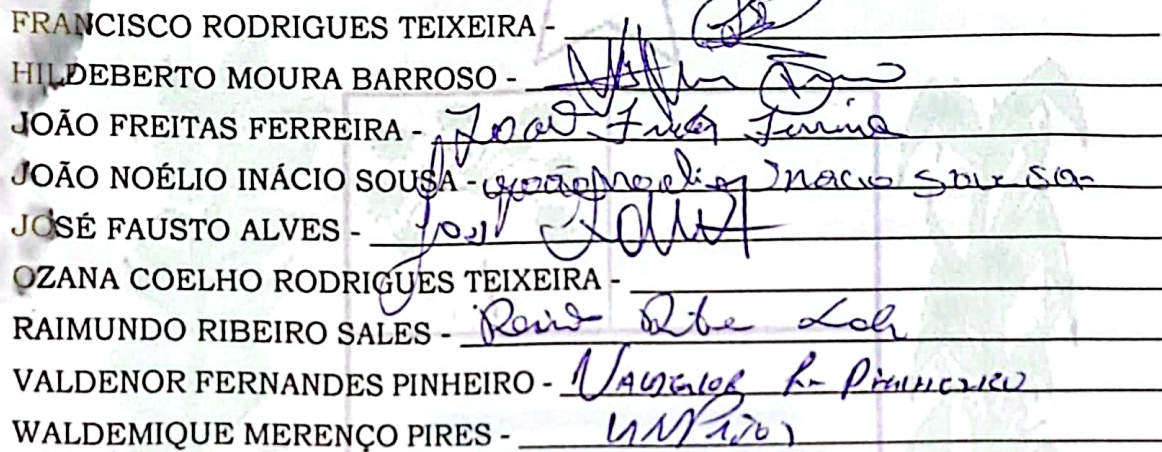 FRANCISCO RODRIGUES TEIXEIRA -
HILDEBERTO MOURA BARROSO -
JOÃO FREITAS FERREIRA - João Freitas Ferreira
JOÃO NOÉLIO INÁCIO SOUSA - João Noelio Inacio Sousa
JOSÉ FAUSTO ALVES - José
OZANA COELHO RODRIGUES TEIXEIRA -
RAIMUNDO RIBEIRO SALES -
VALDENOR FERNANDES PINHEIRO - Valdenor F. Pinheiro
WALDEMIQUE MERENÇO PIRES -